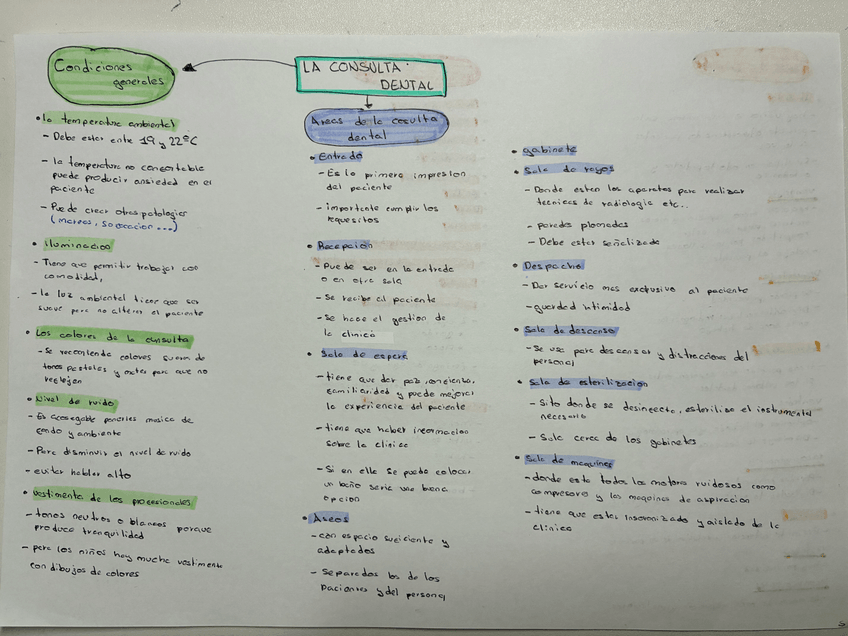 LA CONSULTA
DENTAL
Condiciones
generales
• la temperatura ambiental
- Debe estar entre 19 y 22ºC
- la temperatura no confortable
puede producir ansiedad en el
paciente
- Puede crear otras patologias
(mareos, sofocacion...)
• iluminacion
- Tiene que permitir trabajar con
comodidad,
- la luz ambiental tiene que ser
suave para no alterar al paciente
• Los colores de la consulta
- Se recomienda colores suaves de
tonos pasteles y mates para que no
reflejen
• Nivel de ruido
- Es aconsegable ponerles musica de
fondo y ambiente
- Para disminuir el nivel de ruido
- evitar hablar alto
• vestimenta de los profesionales
- tonos neutros o blancos porque
produce tranquilidad
- para los niños hay mucha vestimenta
con dibujos de colores
Areas de la cosulta
dental
• Entrada
- Es la primera impresion
del paciente
- importante cumplir los
requesitos
• Recepcion
- Puede ser en la entrada
o en otra sala
- Se recibe al paciente
- Se hace el gestion de
la clinica
• Sala de espera
- tiene que dar paz,
familiaridad y puede mejorar
la experiencia del paciente
- tiene que haber informacion
sobre la clinica
- Si en ella se puede colocar
un baño seria una buena
opcion
• Aseos
- con espacio suficiente y
adaptados
- Separados los de los
pacientes y del personal
• gabinete
• Sala de rayos
- Donde esten los aparatos para realizar
tecnicas de radiologia etc...
- paredes plomadas
- Debe estar señalizada
• Despacho
- Dar servicio mas exclusivo al paciente
- guardad intimidad
• Sala de descanso
- Se usa para descansar y distracciones del
personal
• Sala de esterilizacion
- Sito donde se desinfecta, esteriliza el instrumental
necesario
- Sala cerca de los gabinetes
• Sala de maquinas
- donde esta todos los motores ruidosos como
compresora y las maquinas de aspiracion
- tiene que estar insonorizado y aislado de la
clinica